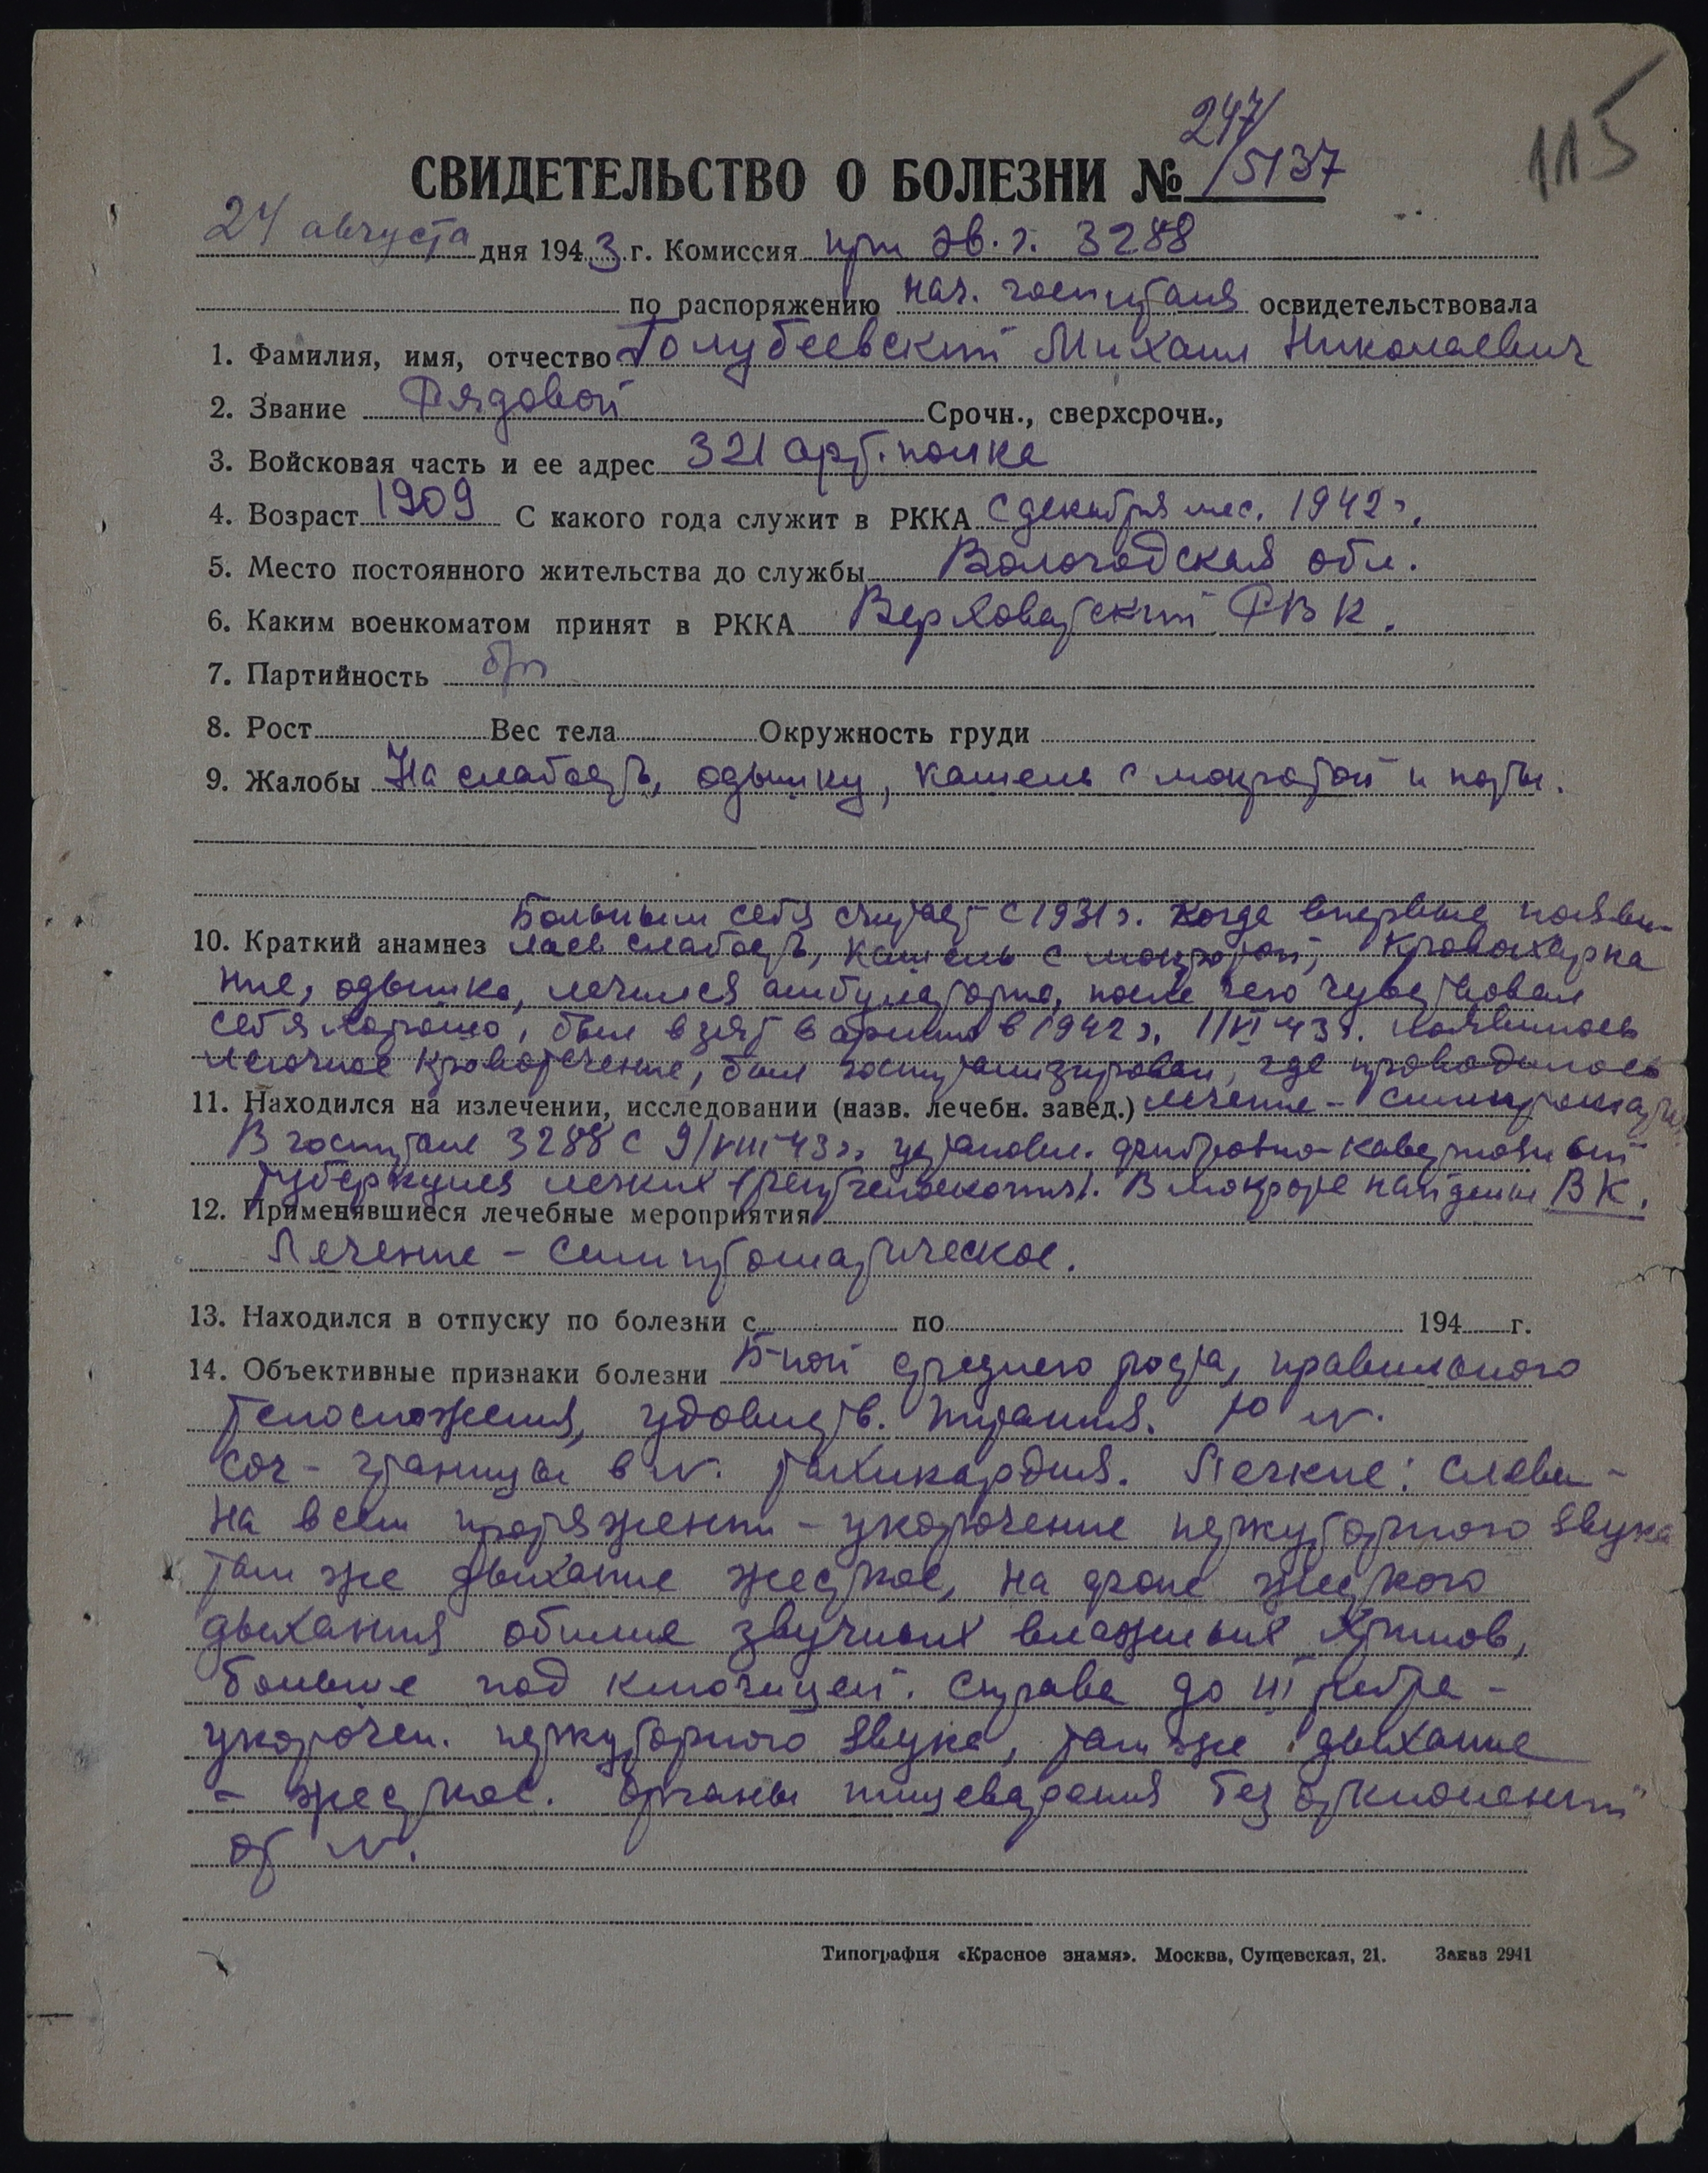 115
247/5137
СВИДЕТЕЛЬСТВО О БОЛЕЗНИ №
24 августа дня 1943 г. Комиссия при эв. г. 3288
по распоряжению нач. госпиталя освидетельствовала
1. Фамилия, имя, отчество Голубеевский Михаил Николаевич
2. Звание Рядовой Срочн., сверхсрочн.,
3. Войсковая часть и ее адрес 321 арт. полка
4. Возраст 1909 С какого года служит в РККА с декабря мес. 1942 г.
5. Место постоянного жительства до службы Вологодская обл.
6. Каким военкоматом принят в РККА Верховажский РВК.
7. Партийность б/п
8. Рост Вес тела Окружность груди
9. Жалобы На слабость, одышку, кашель с мокротой и поты.
Больным себя считает с 1931 г. когда впервые появи-
10. Краткий анамнез лась слабость, кашель с мокротой, кровохарка
ние, одышка, лечился амбулаторно, после чего чувствовал
себя хорошо, был взят в армию в 1942 г. 1/VI 43 г. появилось
легочное кровотечение, был госпитализирован, где проводилось
11. Находился на излечении, исследовании (назв. лечебн. завед.) лечение – симптомат
В госпитале 3288 с 9/VIII 43 г. установл. фиброзно-кавернозный
туберкулез легких (рентгеноскопия). В мокроте найдены ВК.
12. Применявшиеся лечебные мероприятия
Лечение – симптоматическое.
13. Находился в отпуску по болезни с по 194 г.
14. Объективные признаки болезни Б-ной среднего роста, правильного
телосложения, удовлетв. питания. t° N.
Cor – границы в N. тахикардия. Легкие: слева –
на всем протяжении – укорочение перкуторного звука
там же дыхание жесткое, на фоне жесткого
дыхания обилие звучных влажных хрипов,
больше под ключицей. Справа до III ребра –
укорочен. перкуторного звука, там же дыхание
– жесткое. Органы пищеварения без отклонений
от N.
Типография «Красное знамя». Москва, Сущевская, 21. Заказ 2941